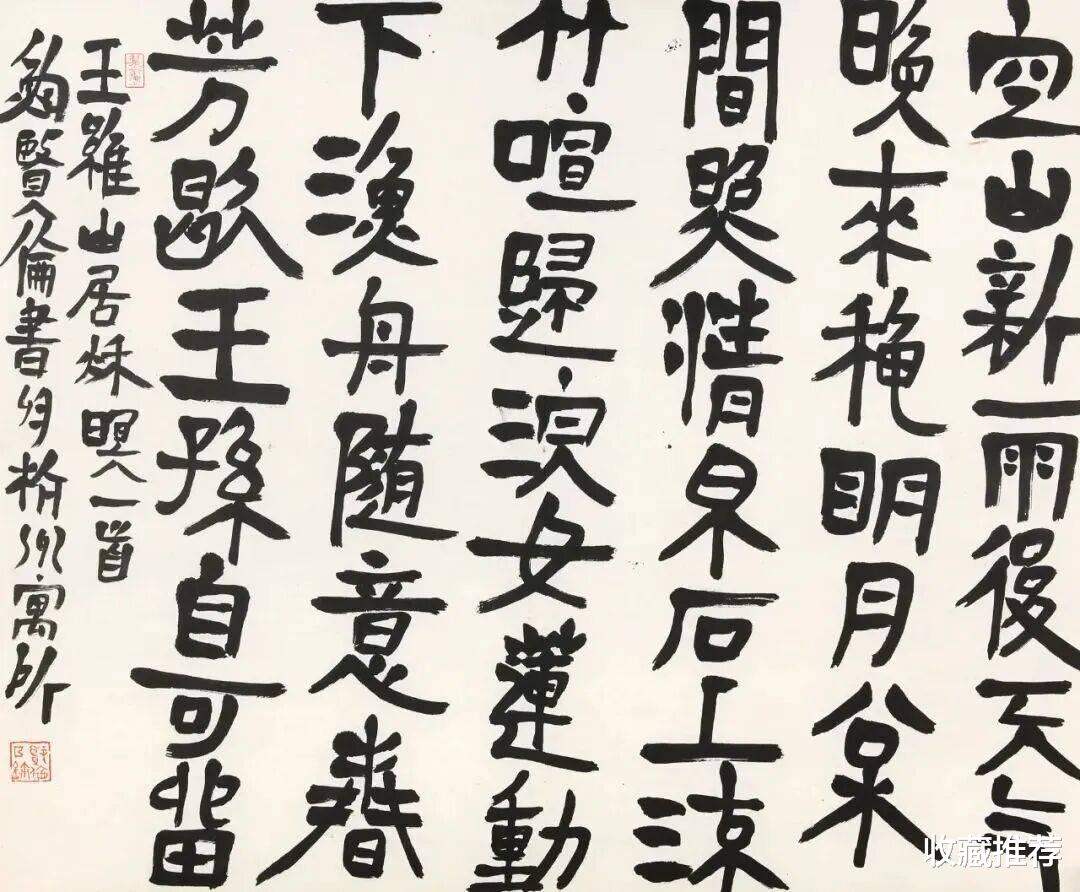 空山新雨後天气
晚來穐明月枀
間照清泉石上流
竹喧歸浣女蓮動
下漁舟隨意春
芳歇王孫自可留
王維山居秋暝一首
倫書於寓所
收藏推荐